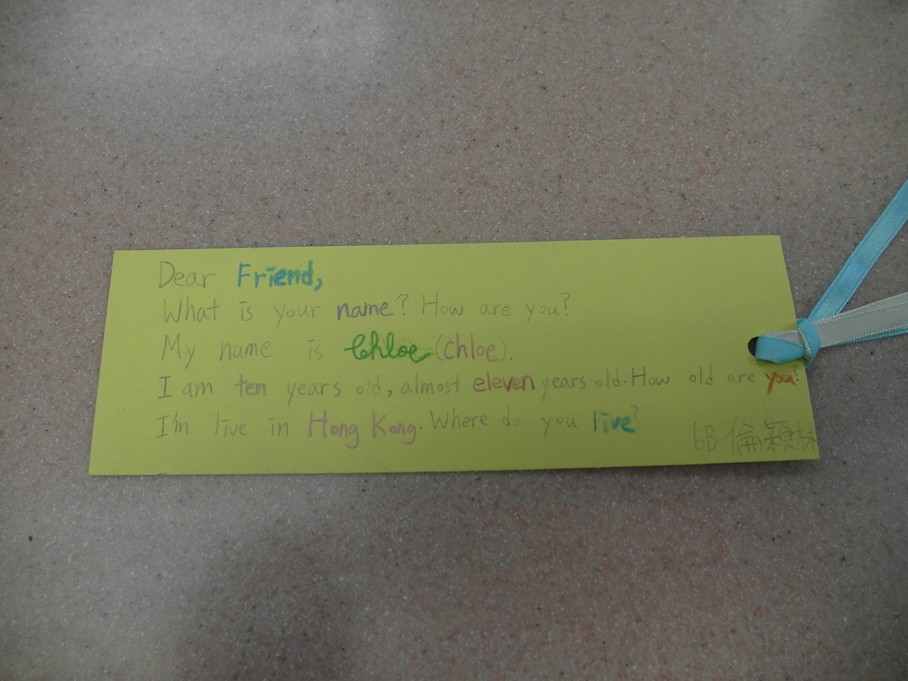 Dear Friend,
What is your name? How are you?
My name is Chloe (chloe).
I am ten years old, almost eleven years old. How old are you?
I'm live in Hong Kong. Where do you live?
6B 倫穎林